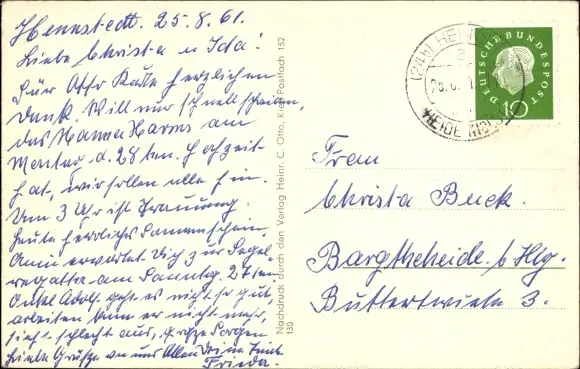 Hennstedt, 25.8.61.
Liebe Christa u Ida!
Für Otto Karte herzlichen
Dank. Will nur schnell schreiben,
das Hanna Harms am
Montag d. 28ten. Hochzeit
hat, wir sollen alle hin.
Um 3 Uhr ist Trauung.
Heute herrliches Sonnenschein.
Anni erwartet Dich zur Segel-
regatta am Sonntag. 27ten.
Onkel Adolf geht es nicht so gut,
arbeiten kann er nicht mehr,
sieht schlecht aus, große Sorgen
Viele Grüße an uns Allen Deine
Frieda.
Nachdruck durch den Verlag Heinr. C. Otto, Kiel, Postfach 152
130
(24b)
HEIDE
DEUTSCHE BUNDESPOST
10
Frau
Christa Buck.
Bargteheide b/Hbg.
Butterwiete 3.